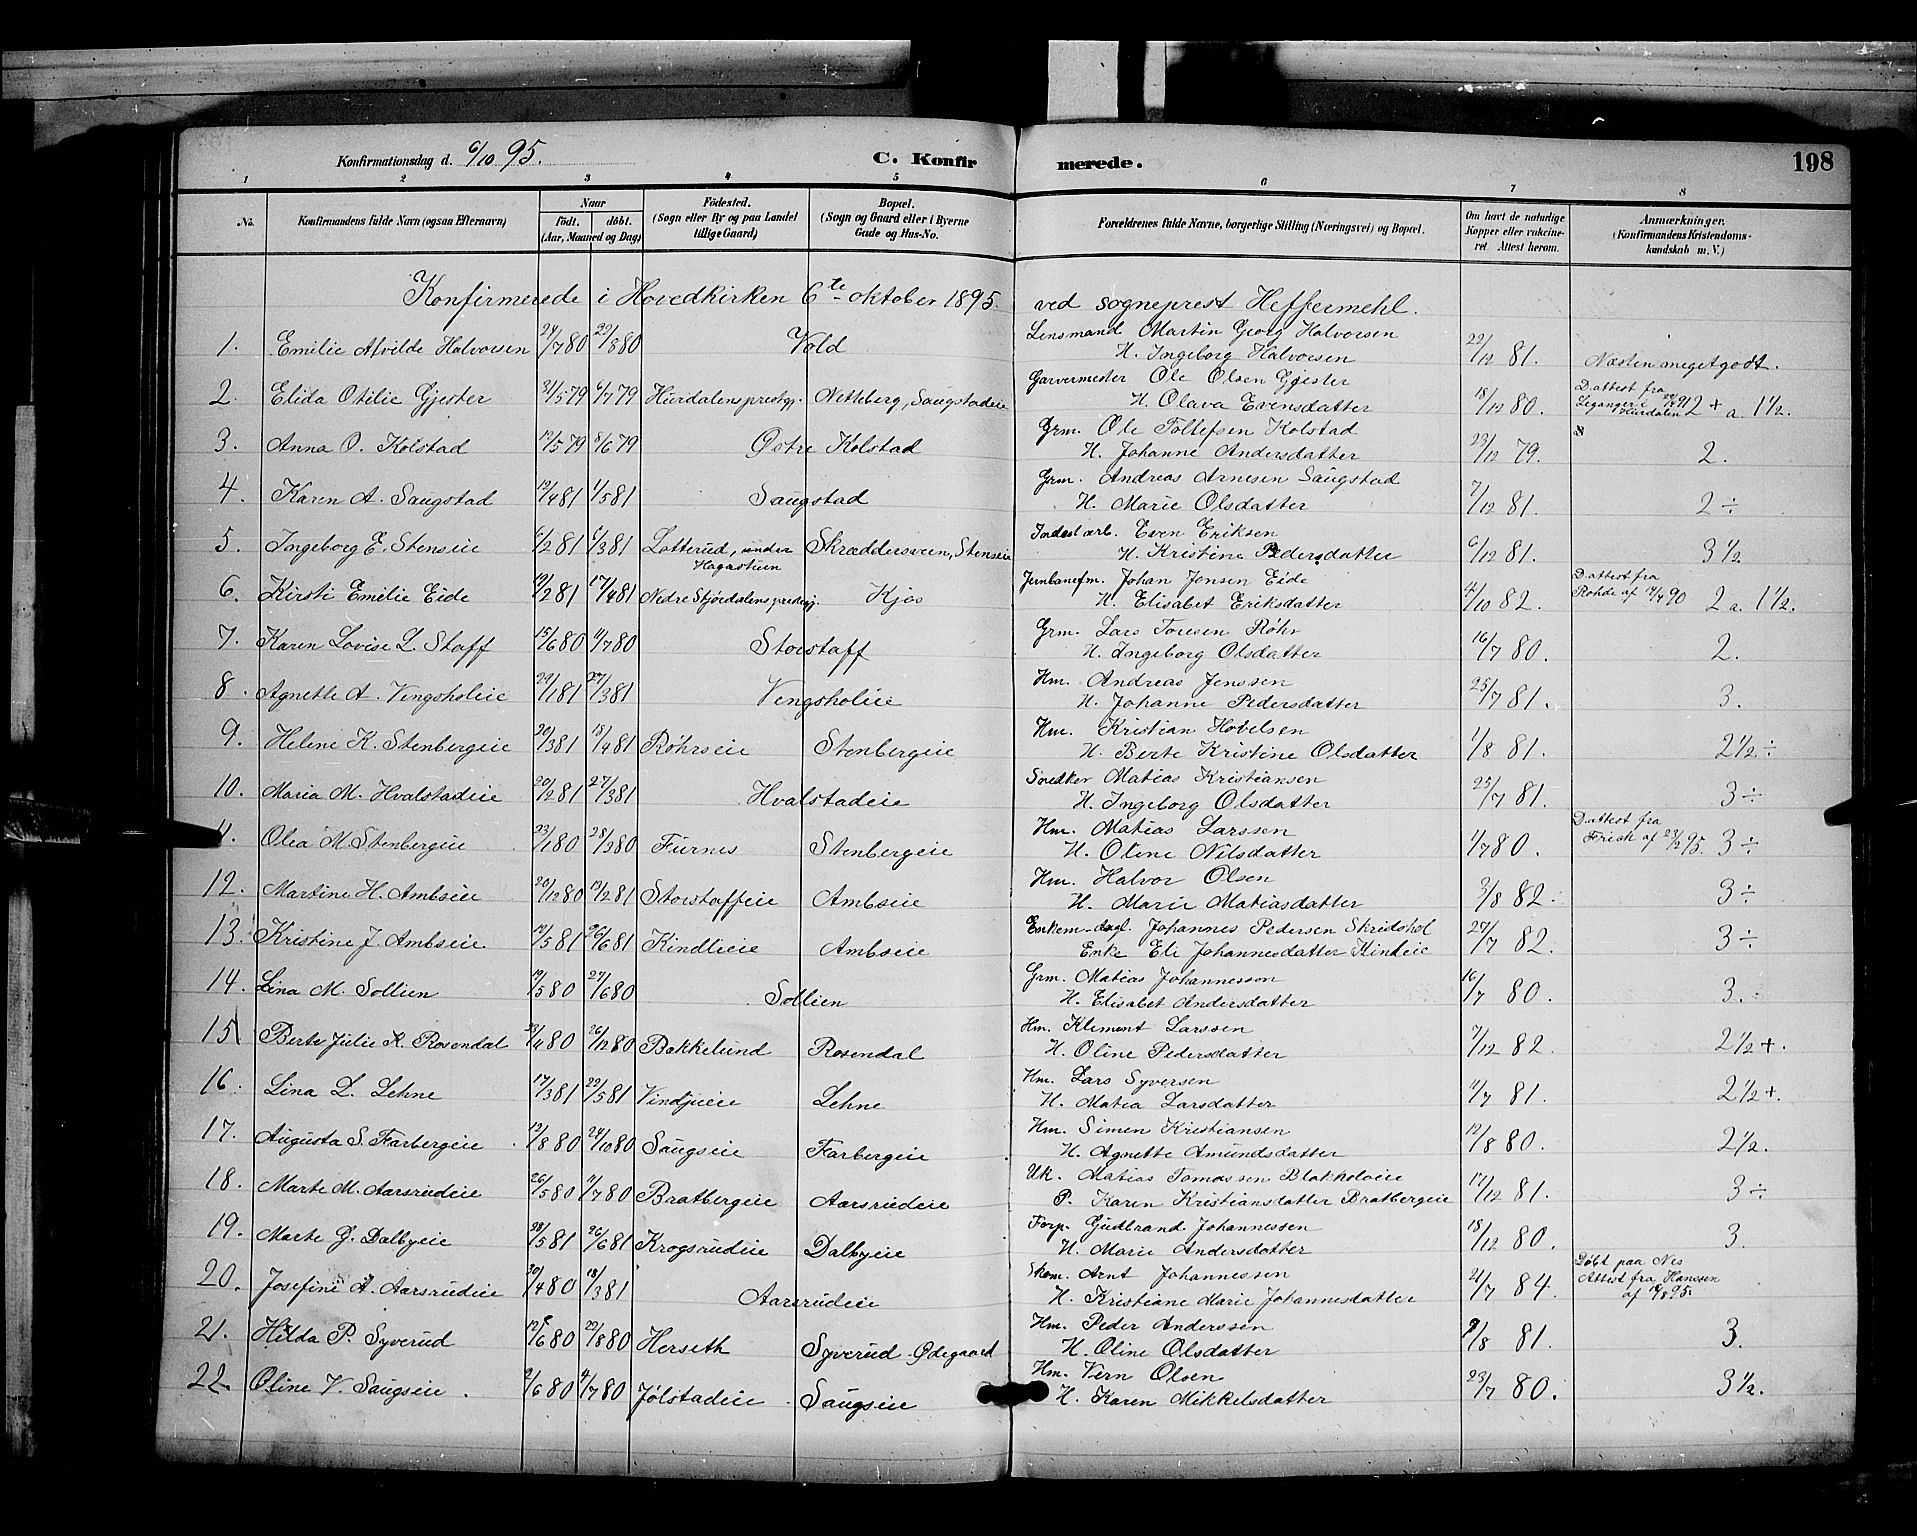 Konfirmationsdag d. 6/10 95. C. Konfirmerede. 198
1 2 3 4 5 6 7 8
No. Konfirmandens fulde Navn (ogsaa Efternavn) Naar født. døbt. (Aar, Maaned og Dag) Fødested. (Sogn eller By og paa Landet tillige Gaard) Bopæl. (Sogn og Gaard eller i Byerne Gade og Hus-No. Forældrenes fulde Navne, borgerlige Stilling (Næringsvei) og Bopæl. Om havt de naturlige Kopper eller vakcineret. Attest herom. Anmærkninger. (Konfirmandens Kristendomskundskab m. V.)
Konfirmerede i Hovedkirken 6te oktober 1895. ved sogneprest Heffermehl.
1. Emilie Alvilde Halvorsen 24/7 80 29/8 80 Vold Lensmand Martin Georg Halvorsen H. Ingeborg Halvorsen 29/12 81. Næsten meget godt.
2. Elida Otilie Gjester 31/5 79 6/7 79 Hurdalens prestgj. Netteberg, Saugstadeie Garvermester Ole Olsen Gjester H. Olava Evensdatter 18/12 80. D.attest fra Hurdalen 2+ a. 1½.
3. Anna O. Kolstad 12/5 79 8/6 79 Østre Kolstad Grm. Ole Tollefsen Kolstad H. Johanne Andersdatter 23/12 79. 2.
4. Karen A. Saugstad 12/4 81 1/5 81 Saugstad Grm. Andreas Arnesen Saugstad H. Marie Olsdatter 7/12 81. 2÷
5. Ingeborg E. Stenseie 6/2 81 6/3 81 Lotterud, under Hagastuen Skræddersveen, Stenseie Even Eriksen H. Kristine Pedersdatter 6/12 81. 3½
6. Kirsti Emilie Eide 19/2 81 17/4 81 Nedre Stjørdalens prestegj. Kjos Jernbanefm. Johan Jensen Eide H. Elisabet Eriksdatter 4/10 82. D.attest fra Rohde af 90 2 a. 1½.
7. Karen Lovise L. Staff 15/6 80 11/7 80 Storstaff Grm. Lars Toresen Røhr H. Ingeborg Olsdatter 16/7 80. 2.
8. Agnette A. Vengsholeie 29/1 81 27/3 81 Vengsholeie Hm. Andreas Jenssen H. Johanne Pedersdatter 25/7 81. 3.
9. Helene K. Stenbergeie 20/3 81 18/4 81 Røhrseie Stenbergeie Hm. Kristian Hovelsen H. Berte Kristine Olsdatter 1/8 81. 2½÷
10. Maria M. Hvalstadeie 20/2 81 27/3 81 Hvalstadeie Snedker Matias Kristiansen H. Ingeborg Olsdatter 25/7 81. 3÷
11. Olea M. Stenbergeie 23/1 80 28/3 80 Furnes Stenbergeie Hm. Matias Larssen H. Oline Nilsdatter 1/7 80. D.attest fra Frich af 23/2 95. 3÷
12. Martine H. Ambseie 20/12 80 13/2 81 Storstaffeie Ambseie Hm. Halvor Olsen H. Marie Matiasdatter 3/8 82. 3÷
13. Kristine J. Ambseie 12/5 81 26/6 81 Kindlieie Ambseie Enkem. dagl. Johannes Pedersen Skridshol Enke Eli Johannesdatter Kindeie 27/7 82. 3÷
14. Lina M. Sollien 19/5 80 27/6 80 Sollien Grm. Matias Johannesson H. Elisabet Andersdatter 16/7 80. 3.
15. Berte Julie K. Rosendal 23/4 80 26/12 80 Bakkelund Rosendal Hm. Klement Larssen H. Oline Pedersdatter 7/12 82. 2½+.
16. Lina L. Lehne 17/3 81 29/5 81 Vindjueie Lehne Hm. Lars Syversen H. Matea Larsdatter 11/7 81. 2½+.
17. Augusta S. Farbergeie 12/8 80 24/10 80 Saugseie Farbergeie Hm. Simen Kristiansen H. Agnette Amundsdatter 12/8 80. 2½.
18. Marte M. Aarsrudeie 26/5 80 11/7 80 Bratbergeie Aarsrudeie Uk. Matias Tomassen Blakholeie P. Karen Kristiansdatter Bratbergeie 17/12 81. 3÷
19. Marte G. Dalbyeie 28/5 81 26/6 81 Krogsrudeie Dalbyeie Forp. Gudbrand Johannessen H. Marie Andersdatter 18/12 80. 3.
20. Josefine A. Aarsrudeie 30/4 80 18/3 81 Aarsrudeie Skom. Arnt Johannessen H. Kristiane Marie Johannesdatter 21/7 84. Døbt paa Nes Attest fra Hanssen af 95.
21. Hilda P. Syverud 12/6 80 29/8 80 Herseth Syverud Ødegaard Hm. Peder Anderssen H. Oline Olsdatter 9/8 81. 3.
22. Oline V. Saugseie. 2/6 80 4/7 80 Jølstadeie Saugseie Hm. Vern Olsen H. Karen Mikkelsdatter 23/7 80. 3½.